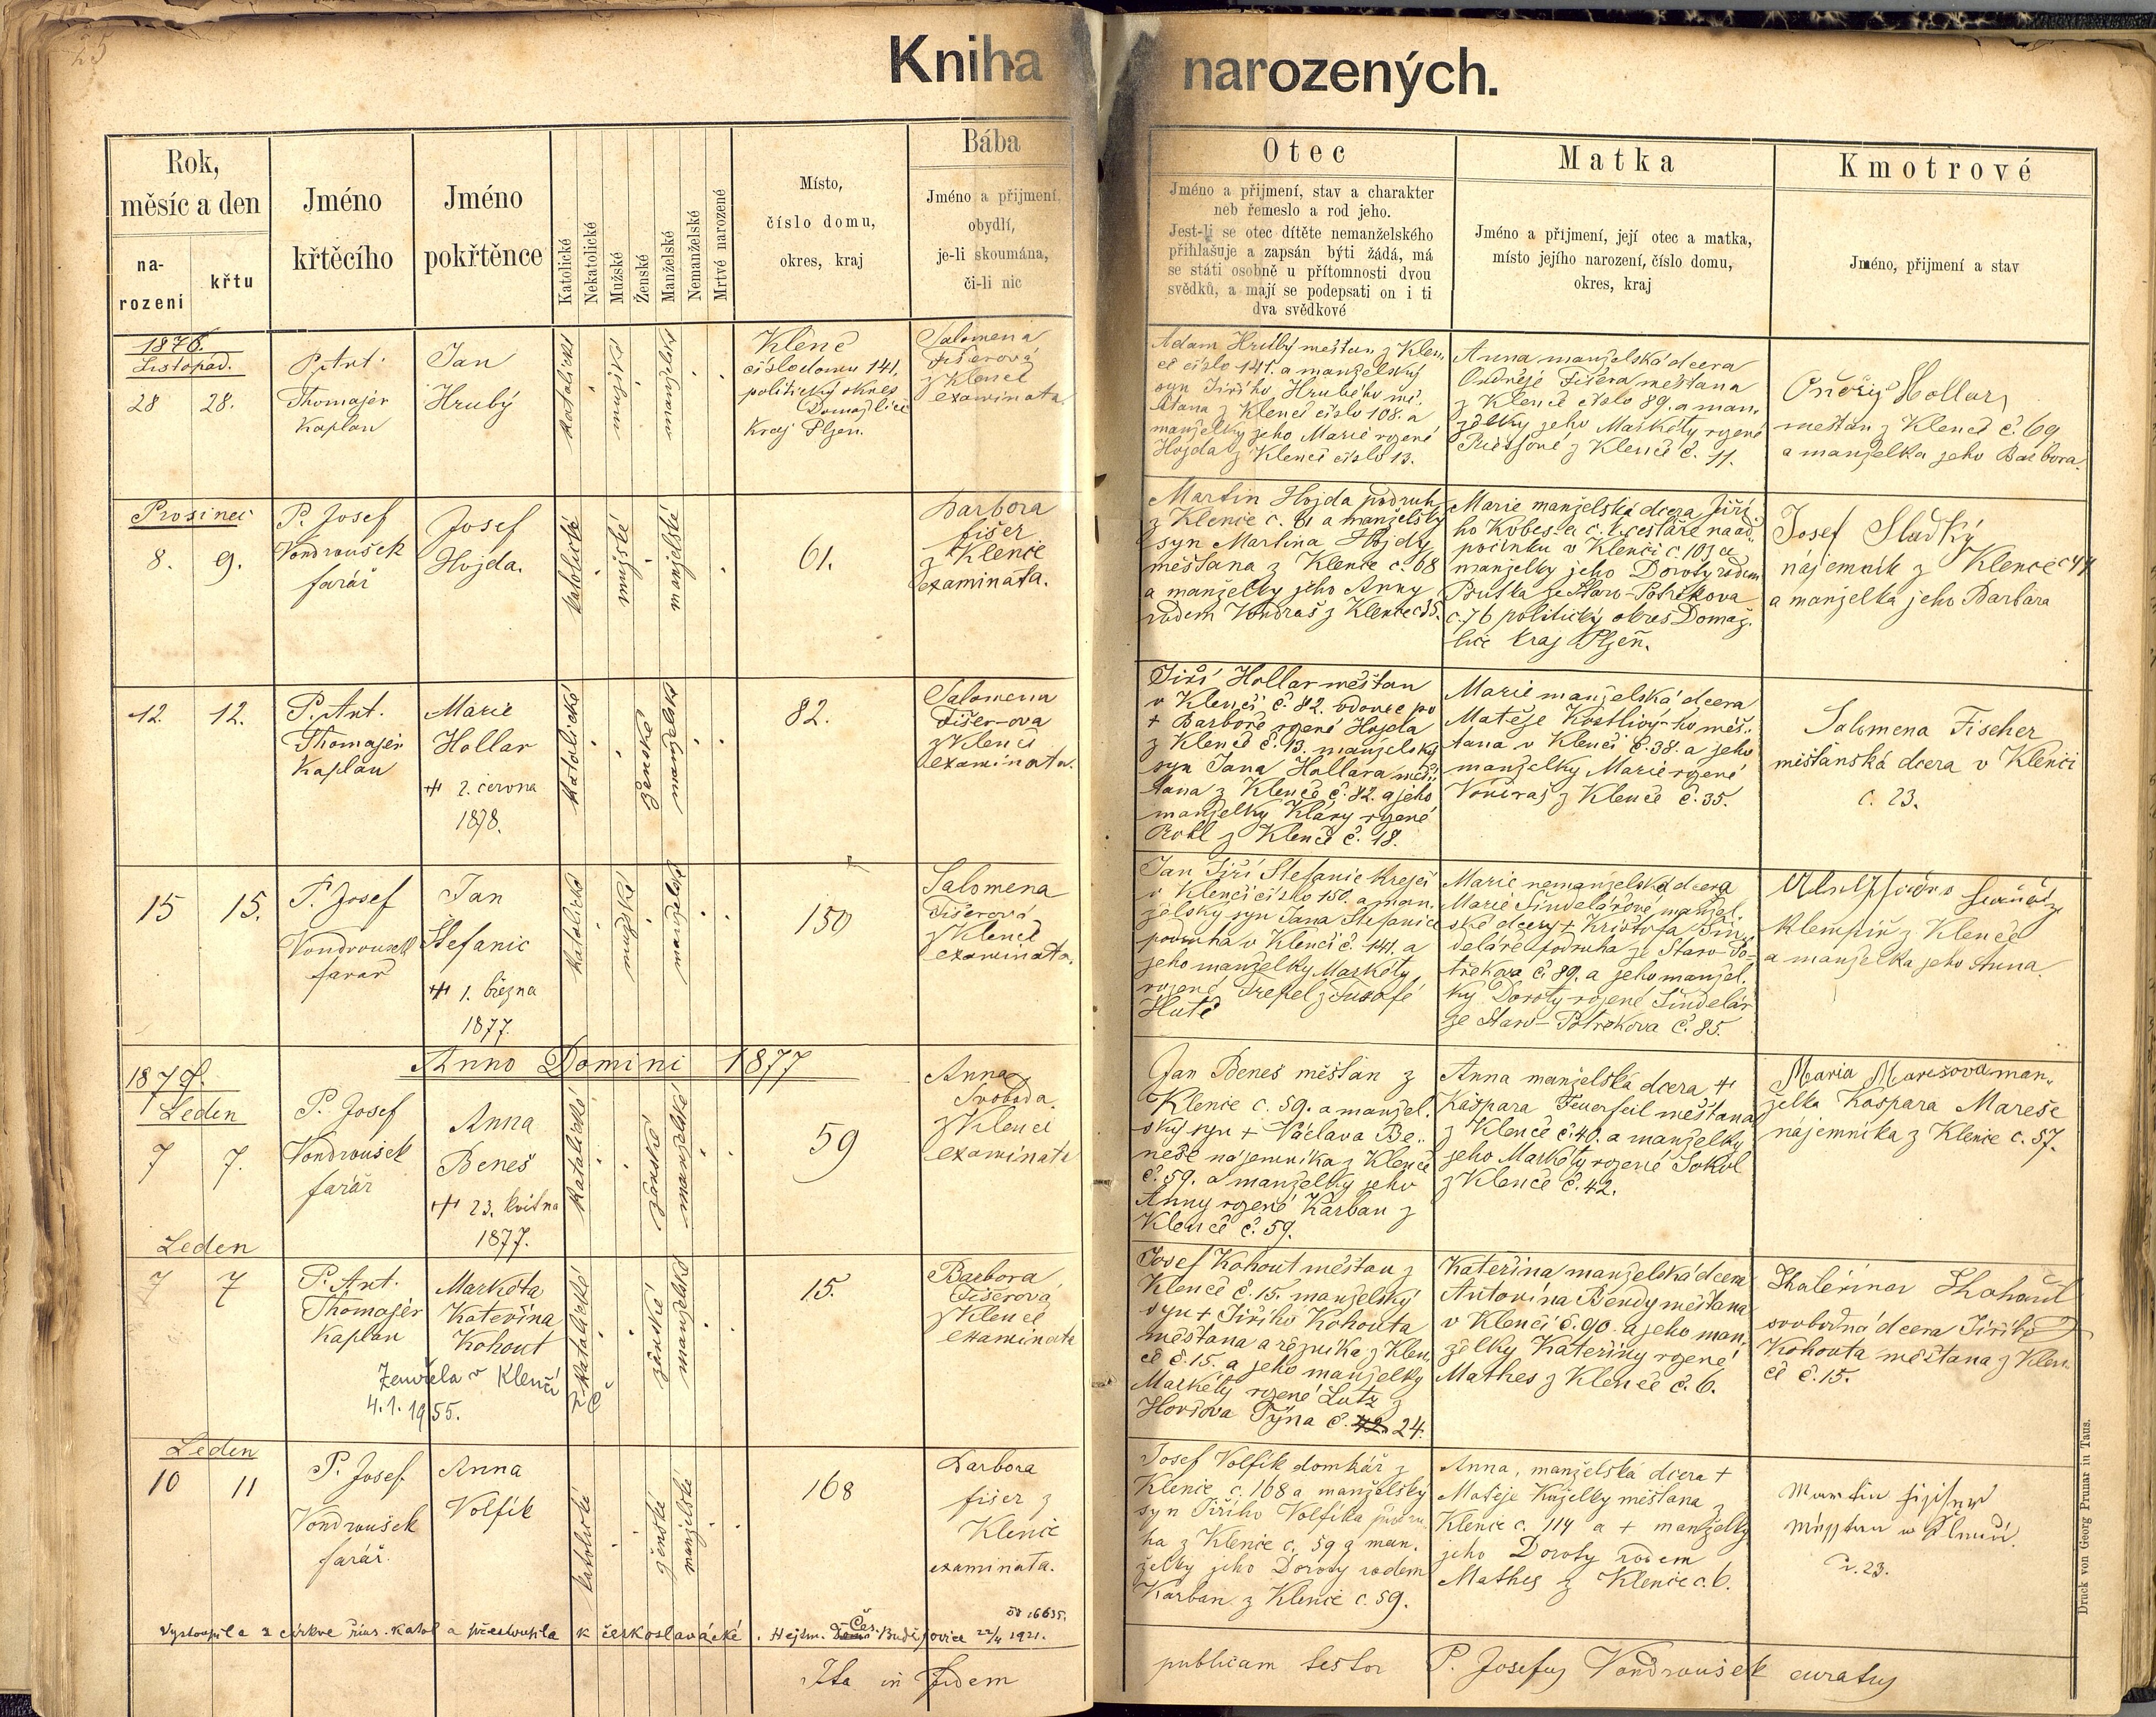 25
Kniha narozených.
Rok,
měsíc a den
na-
rození
křtu
Jméno
křtěcího
Jméno
pokřtěnce
Katolické
Nekatolické
Mužské
Ženské
Manželské
Nemanželské
Mrtvé narozené
Místo,
číslo domu,
okres, kraj
Bába
Jméno a příjmení,
obydlí,
je-li skoumána,
či-li nic
Otec
Jméno a přijmení, stav a charakter
neb řemeslo a rod jeho.
Jest-li se otec dítěte nemanželského
přihlašuje a zapsán býti žádá, má
se státi osobně u přítomnosti dvou
svědků, a mají se podepsati on i ti
dva svědkové
Matka
Jméno a přijmení, její otec a matka,
místo jejího narození, číslo domu,
okres, kraj
Kmotrové
Jméno, přijmení a stav
1876.
Listopad.
28 28.
P. Ant.
Thomajer
Kaplan
Jan
Hrubý
katolické
mužské
manželské
Klenč
číslo domu 141.
politický okres
Domažlice
Kraj Plzen.
Salomena
Fišerová
z Klenče
examinata
Adam Hrubý mešťan z Klen
če číslo 141. a manželský
syn Jiřího Hrubého mě.
šťana z Klenče číslo 108. a
manželky jeho Marie rozené
Hojda z Klenče číslo 13.
Anna manželská dcera
Ondřeje Fišera měšťana
z Klenče číslo 89. a man.
želky jeho Markéty rozené
z Klenče č. 11.
Ondřej Hollar
mešťan z Klenče č. 69
a manželka jeho Barbora.
Prosinec
8. 9.
P. Josef
Vondroušek
farář
Josef
Hojda.
katolické
mužské
manželské
61.
Barbora
fišer
z Klenče
examinata.
Martin Hojda podruh
z Klenče č. 61 a manželský
syn Martina Hojdy
měšťana z Klenče č. 68
a manželky jeho Anny
rodem Vondraš z Klenče č 35.
Marie manželská dcera Jiří
ho Kobes a c. k. cestáře na od.
počinku v Klenči č. 103 a
manželky jeho Doroty rodem
Pruška ze Staro-Postřekova
č. 76 politický okres Domaž.
lice kraj Plzeň.
Josef Sladký
nájemník z Klenče č 44
a manželka jeho Barbara
12. 12.
P. Ant.
Thomajer
Kaplan
Marie
Hollar
+ 2. června
1878.
Katolické
ženské
manželské
82.
Salomena
Fišer-ova
z Klenče
examinata.
Jiří Hollar měšťan
v Klenči č. 82. vdovec po
+ Barboře rozené Hojda
z Klenče č. 13. manželský
syn Jana Hollara měš.
ťana z Klenče č. 82. a jeho
manželky Kláry rozené
Rohl z Klenče č. 18.
Marie manželská dcera
Matěje Kostlivy-ho měš.
ťana v Klenči č. 38. a jeho
manželky Marie rozené
Vondraš z Klenče č. 35.
Salomena Fischer
měšťanská dcera v Klenči
č. 23.
15 15.
P. Josef
Vondroušek
farář
Jan
Štefanic
+ 1. března
1877.
Katolické
mužské
manželské
150
Salomena
Fišerová
z Klenče
examinata.
Jan Jiří Stefanic krejčí
v Klenči číslo 150. a man.
želský syn Jana Stefanice
podruha v Klenči č. 141. a
jeho manželky Markéty,
rozené Trefel z
Hutě
Marie nemanželská dcera
Marie Šindelářové manžel.
ské dcery + Kristofa Šin.
deláře podruha ze Staro-Po-
třekova č. 89. a jeho manžel.
ky Doroty rozené Šindelář
ze Staro-Postřekova č. 85.
Klempíř z Klenče
a manželka jeho Anna.
Anno Domini 1877
1877.
Leden
7 7.
P. Josef
Vondroušek
farář
Anna
Beneš
+ 23. května
1877.
Katolické
ženské
manželské
59
Anna
Svoboda
z Klenče
examinata
Jan Beneš měšťan z
Klenče č. 59. a manžel.
ský syn + Václava Be..
neše nájemníka z Klenče
č. 59. a manželky jeho
Anny rozené Karban z
Klenče č. 59.
Anna manželská dcera +
Kašpara Feuerfeil měšťana
z Klenče č. 40. a manželky
jeho Markéty rozené Sokol
z Klenče č. 42.
Maria Marešová man.
želka Kaspara Mareše
nájemníka z Klenče č. 57.
Leden
7 7
P. Ant.
Thomajer
Kaplan
Markéta
Kateřina
Kohout
Zemřela v Klenči
4.1.1955.
Katolické
ženské
manželské
15.
Barbora
Fišerova
z Klenče
examinata
Josef Kohout měšťan z
Klenče č. 15. manželský
syn + Jiřího Kohouta
měšťana a řezníka z Klen
če č. 15. a jeho manželky
Markéty rozené Lutz z
Horšova Týna č. 42. 24.
Kateřina manželská dcera
Antonína Bendy měšťana
v Klenči č. 90. a jeho man.
želky Kateřiny rozené
Mathes z Klenče č. 6.
Kateřina Kohout
svobodná dcera Jiřího
Kohouta měšťana z Klen.
če č. 15.
Leden
10 11
P. Josef
Vondroušek
farář.
Anna
Volfík
katolické
ženské
manželské
168
Barbora
fišer z
Klenče
examinata.
Josef Volfík domkář z
Klenče č. 168 a manželský
syn Jiřího Volfíka podru
ha z Klenče č. 59 a man.
želky jeho Doroty rodem
Karban z Klenče č. 59.
Anna, manželská dcera +
Matěje Kuželky měšťana z
Klenče č. 114 a + manželky
jeho Doroty rodem
Mathes z Klenče č. 6.
Martin
č. 23.
Vystoupila z církve řims. katol a přestoupila k československé. Hejtm. Čes. Budějovice 22/4 1921.
Ita in fidem publicam testor P. Josefus Vondroušek curatus
Druck von Georg Prunar in Taus.